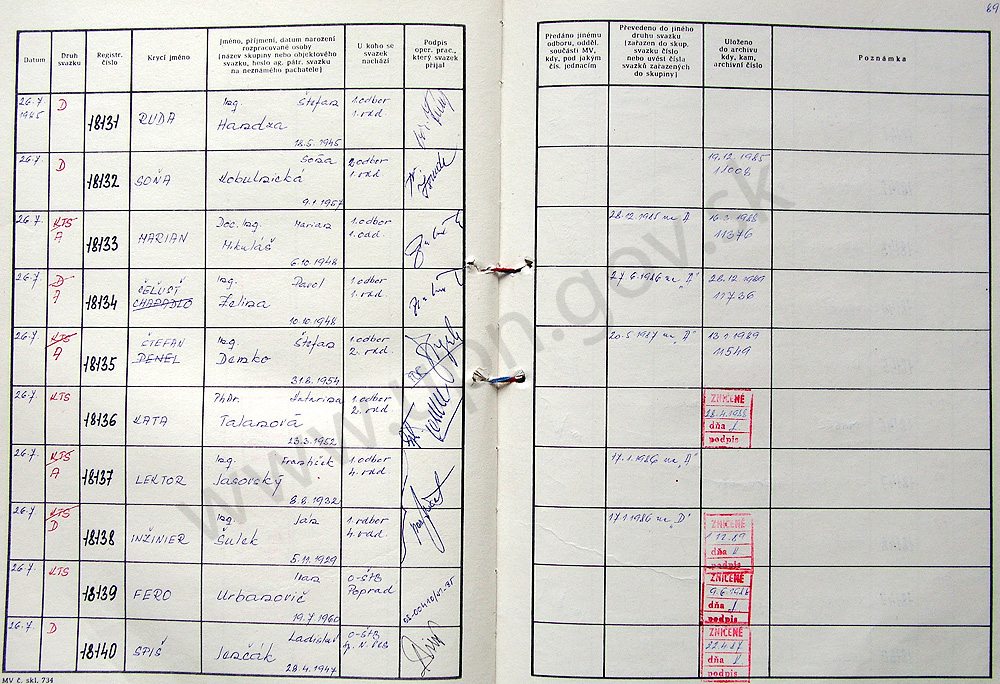 69
Datum
Druh svazku
Registr. číslo
Krycí jméno
Jméno, příjmení, datum narození
rozpracované osoby
(název skupiny nebo objektového
svazku, heslo ag. pátr. svazku
na neznámého pachatele)
U koho se
svazek
nachází
Podpis
oper. prac.,
který svazek
přijal
Předáno jinému
odboru, odděl.
součásti MV,
kdy, pod jakým
čís. jednacím
Převedeno do jiného
druhu svazku
(zařazen do skup.
svazku číslo
nebo uvést čísla
svazků zařazených
do skupiny)
Uloženo
do archivu
kdy, kam,
archivní číslo
Poznámka
26.7. 1985 D 18131 RUDA Ing. Štefan 1. odbor
Handza 1. odd.
18.5.1945
26.7. D 18132 SOŇA Soňa 2. odbor 19.12.1985
Kobulnická 1. odd. 11008
9.1.1957
26.7. KTS A 18133 MARIAN Doc. Ing. Marian 1. odbor 28.12.1985 na "A"
Mikuláš 1. odd. 11376
6.10.1948
26.7. D A 18134 ČELUSŤ Ing. Pavol 1. odbor 27.6.1986 na "A" 28.12.1989
CHAPADLO Zelina 1. odd. 11736
10.10.1948
26.7. KTS A 18135 ŠTEFAN Ing. Štefan 1. odbor 20.5.1987 na "A" 13.1.1989
DENEL Demko 2. odd. 11549
31.8.1954
26.7. KTS 18136 KATA PhDr. Katarína 1. odbor ZNIČENÉ
Talanová 2. odd. 28.4.1988
23.3.1952 dňa
podpis
26.7. KTS A 18137 LEKTOR Ing. František 1. odbor 17.1.1986 na "A"
Jasovský 4. odd.
8.8.1932
26.7. KTS D 18138 INŽINIER Ing. Ján 1. odbor 17.1.1986 na "D" ZNIČENÉ
Šulek 4. odd. 1.12.89
5.11.1929 dňa
podpis
26.7. KTS 18139 FERO Ivan O-ŠtB ZNIČENÉ
Urbanovič Poprad 9.6.1988
19.7.1960 dňa
podpis
26.7. D 18140 SPIŠ Ladislav O-ŠtB ZNIČENÉ
Ivančák 22.4.87
28.4.1947 dňa
podpis
MV č. skl. 734
www.upn.gov.sk